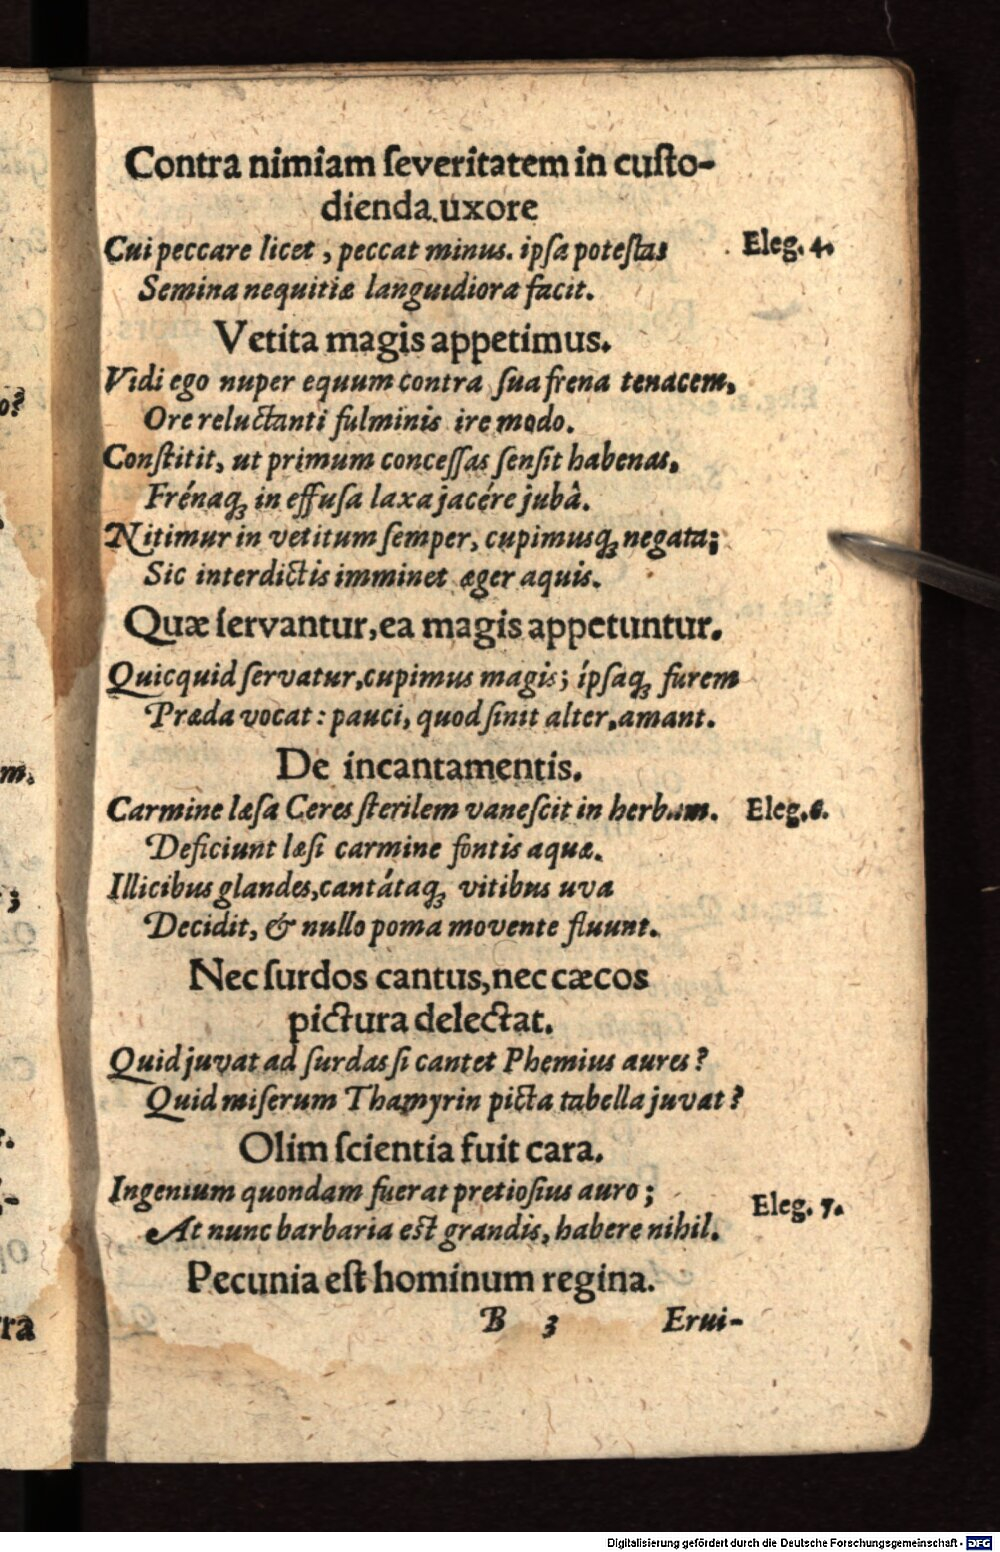 Contra nimiam ſeveritatem in cuſto-
dienda uxore
Cui peccare licet, peccat minus. ipſa poteſtas Eleg. 4.
Semina nequitiæ languidiora facit.
Vetita magis appetimus.
Vidi ego nuper equum contra ſua frena tenacem,
Ore reluctanti fulminis ire modo.
Conſtitit, ut primum conceſſas ſenſit habenas,
Frénaq́; in effuſa laxa jacére jubâ.
Nitimur in vetitum ſemper, cupimusq́; negata;
Sic interdictis imminet æger aquis.
Quæ ſervantur, ea magis appetuntur.
Quicquid ſervatur, cupimus magis; ípſaq́; furem
Præda vocat: pauci, quod ſinit alter, amant.
De incantamentis.
Carmine læſa Ceres ſterilem vaneſcit in herbam. Eleg. 6.
Deficiunt læſi carmine fontis aquæ.
Illicibus glandes, cantátaq́; vitibus uva
Decidit, & nullo poma movente fluunt.
Nec ſurdos cantus, nec cæcos
pictura delectat.
Quid juvat ad ſurdas ſi cantet Phemius aures?
Quid miſerum Thamyrin picta tabella juvat?
Olim ſcientia fuit cara.
Ingenium quondam fuerat pretioſius auro;
At nunc barbaria eſt grandis, habere nihil. Eleg. 7.
Pecunia eſt hominum regina.
B 3 Erui-
o?
m.
;
rra
Digitalisierung gefördert durch die Deutsche Forschungsgemeinschaft - DFG